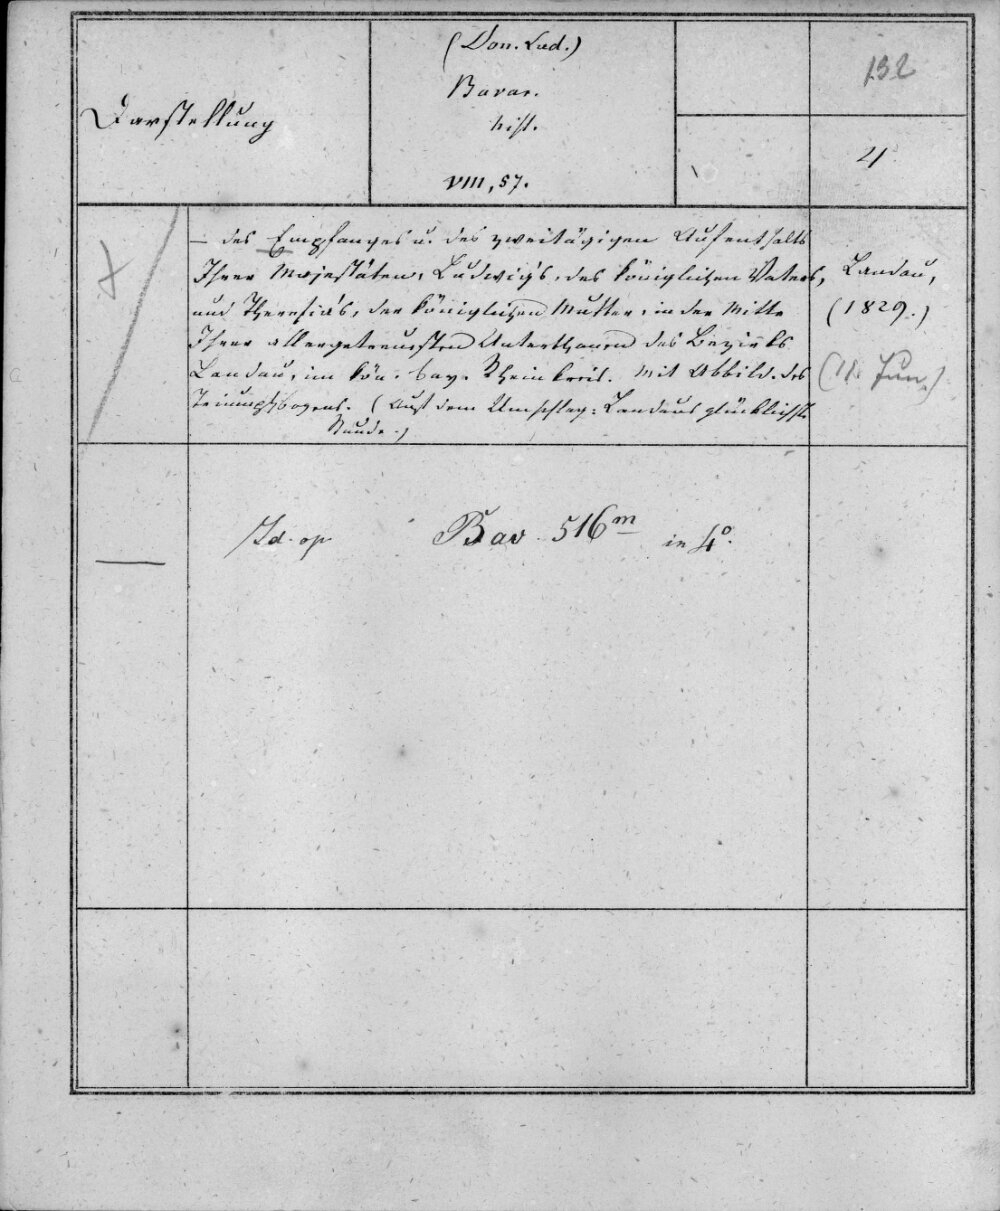 Darstellung
(Don. Lud.)
Bavar.
hist.
VIII, 57.
132
4
— des Empfanges u. des zweitägigen Aufenthalts
Ihrer Majestäten, Ludwig's, des königlichen Vaters,
und Theresia's, der königlichen Mutter, in der Mitte
Ihrer allergetreuesten Unterthanen des Bezirks
Landau, im kön. bay. Rheinkreis. Mit Abbild. des
Triumphbogens. (Auf dem Umschlag: Landaus glücklichste
Stunde.)
Landau,
(1829.)
Jun.)
Id. op
Bav. 516 m
in 4°.